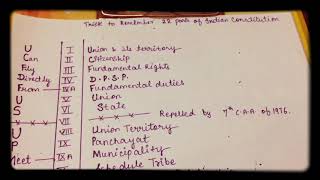 Trick to Remember 22 parts of Indian Constitution
U I Union & its territory
Can II Citizenship
Fly III Fundamental Rights
Directly IV D.P.S.P.
From IV A Fundamental duties
U V Union
S VI State
x x x VII x x x Repelled by 7th C.A.A of 1976.
U VIII Union Territory
P IX Panchayat
Meet IX A Municipality
Schedule Tribe